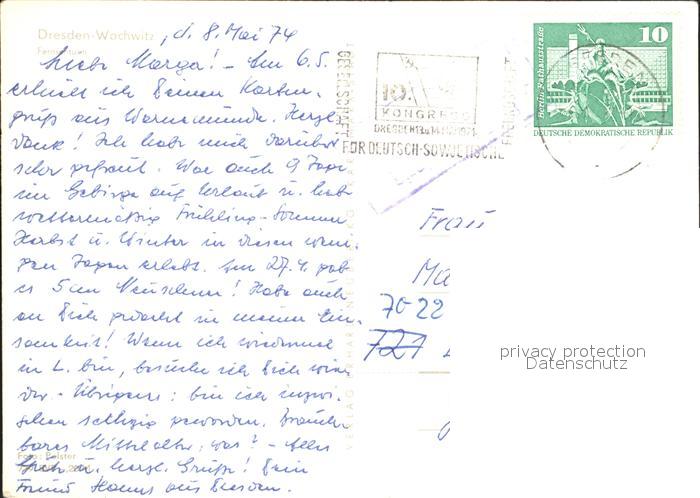 Dresden-Wachwitz, d. 8. Mai 74
Fernsehturm
Liebe Marga! - Am 6.5.
erhielt ich Deinen Karten-
gruß aus Warnemünde. Herzl.
Dank! Ich habe mich darüber
sehr gefreut. War auch 9 Tage
im Gebirge auf Urlaub u. habe
wettermäßig Frühling-Sommer
Herbst u. Winter in diesen weni-
gen Tagen erlebt. Am 27.4. gab
es 5 cm Neuschnee! Habe auch
an Dich gedacht in meiner Ein-
samkeit! Wenn ich wiedermal
in L. bin, besuche ich Dich wie-
der. - Übrigens: bin ich inzwi-
schen selbzig geworden. Brauch-
bares Mittelalter, was? - Alles
Gute u. herzl. Grüße! Dein
Freund Hanns aus Dresden.
Foto: Pelster
10.
KONGRESS
DRESDEN
FÜR DEUTSCH-SOWJETISCHE
GESELLSCHAFT
FREUNDSCHAFT
10
Berlin-Rathausstraße
DEUTSCHE DEMOKRATISCHE REPUBLIK
DRESDEN
Frau
Ma
7022
721
privacy protection
Datenschutz